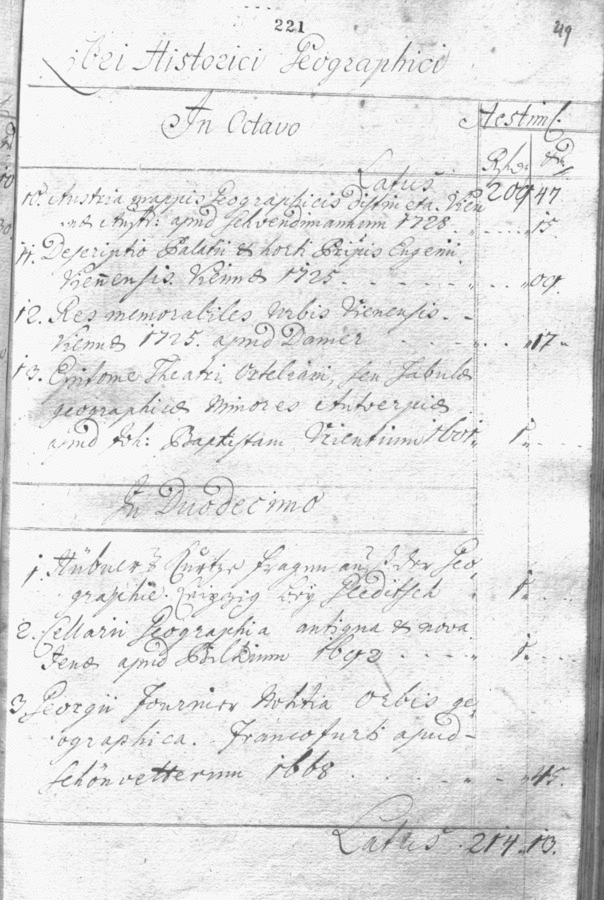 221
49
Libri Historici Geographici
In Octavo
Aestim:
Rfh: d
Latus 209 47
10. Austria mappis Geographicis distincta. Vien
næ Austr: apud Schvendimannum 1728 15.
11. Descriptio Palatii & horti Prpis Eugenii
Viennensis. Viennæ 1725. 09.
12. Res memorabiles Urbis Vienensis.
Viennæ 1725. apud Damer 17.
13. Epitome Theatri Orteliani, seu Tabulæ
geographicæ Minores Antverpiæ
apud Joh: Baptistam Vrientium 1601. 1.
In Duodecimo
1. Hübners Curtze fragen auß der Geo,
graphie. Leipzig bey Gleditsch 1.
2. Cellarii Geographia antigna & nova
Jenæ apud Bilkium 1692 1.
3. Georgii Fournier Notitia Orbis ge,
ographica. Francofurti apud
Schönvetterum 1668 45.
Latus 214. 13.